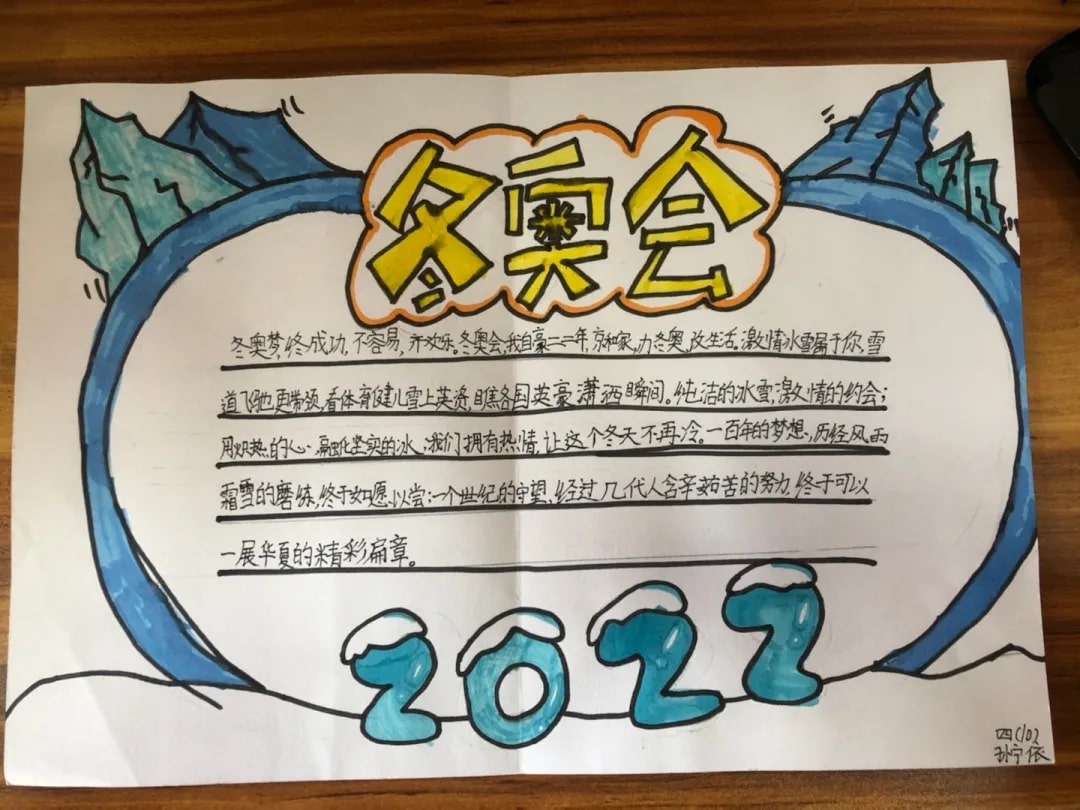 冬奥会
冬奥梦,终成功,不容易,齐欢乐。冬奥会,我自豪二二年,京和家,力冬奥,改生活。激情冰雪属于你,雪
道飞驰更带领,看体育健儿雪上英姿,瞧各国英豪潇洒瞬间。纯洁的冰雪,激情的约会;
用炽热的心,融化坚实的冰,我们拥有热情,让这个冬天不再冷。一百年的梦想,历经风雨
霜雪的磨练,终于如愿以尝;一个世纪的守望,经过几代人含辛茹苦的努力,终于可以
一展华夏的精彩扁章。
2022
四
孙宁依